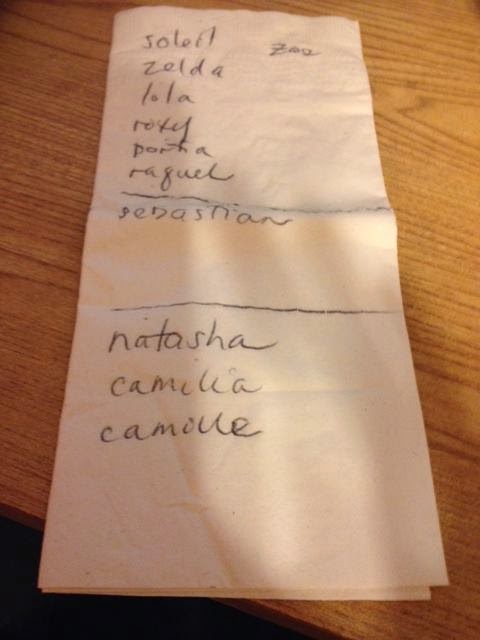 soleil
zoe
zelda
lola
roxy
portia
raquel
sebastian
natasha
camilia
camille